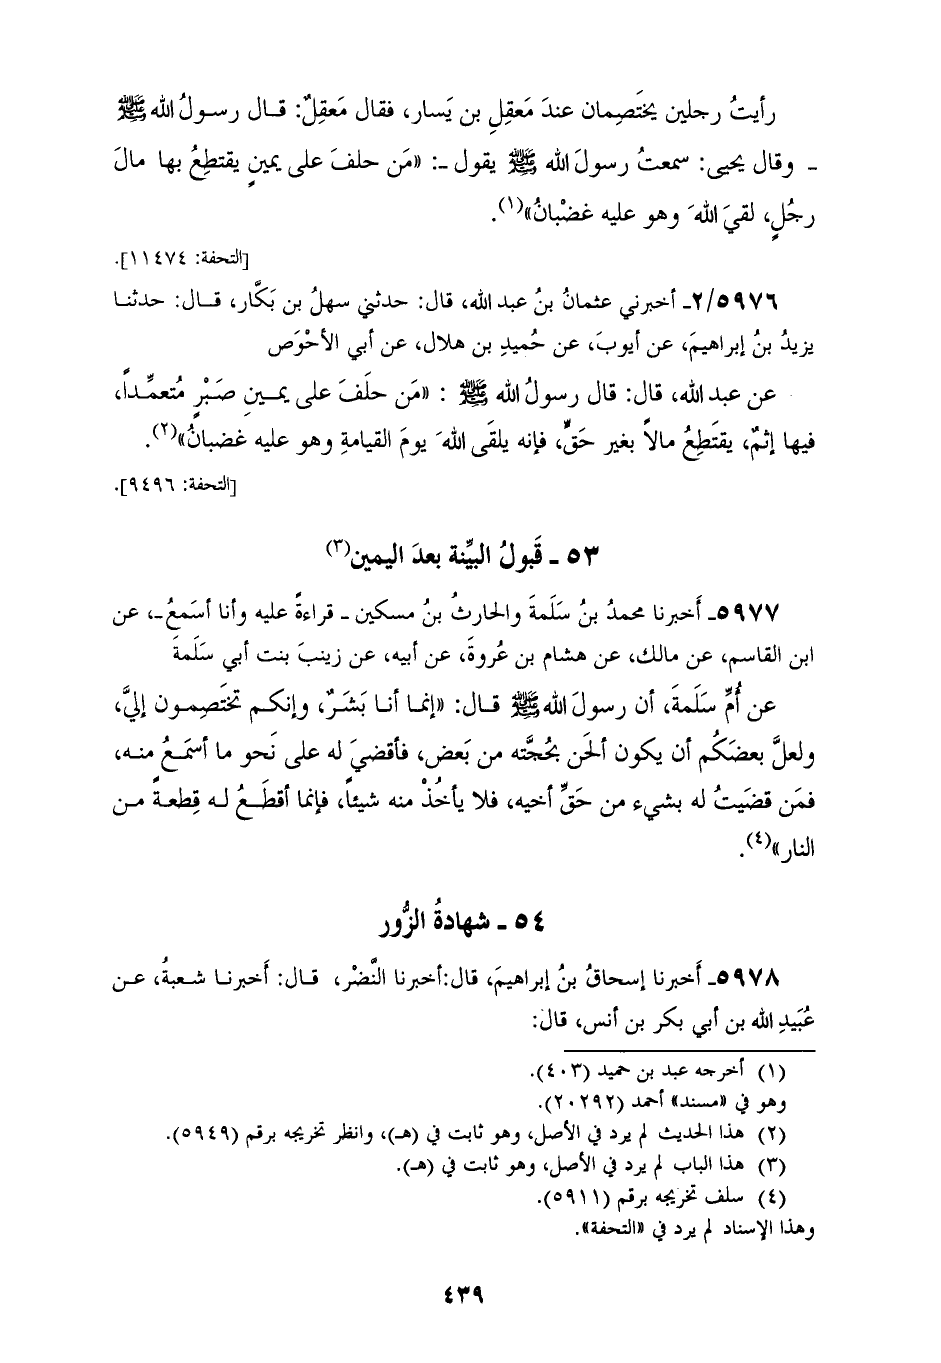 رأيتُ رجلين يختَصِمان عندَ مَعقِلِ بن يَسار، فقال مَعقِلٌ: قـال رسـولُ الله ﷺ
ـ وقال يحيى: سمعتُ رسولَ الله ﷺ يقول ـ: «مَن حلفَ على يمينٍ يقتطِعُ بها مالَ
رجُلٍ، لقيَ اللهَ وهو عليه غضْبانُ»(١).
[التحفة: ١١٤٧٤].
٢/٥٩٧٦ـ أخبرني عثمانُ بنُ عبد الله، قال: حدثني سهلُ بن بَكَّار، قـال: حدثنـا
يزيدُ بنُ إبراهيمَ، عن أيوبَ، عن حُميدِ بن هلال، عن أبي الأحْوَص
عن عبد الله، قال: قال رسولُ الله ﷺ : «مَن حلَفَ على يمـينِ صَبْرٍ مُتعمِّـداً،
فيها إثمٌ، يقتَطِعُ مالاً بغير حَقٍّ، فإنه يلقَى اللهَ يومَ القيامةِ وهو عليه غضبانُ»(٢).
[التحفة: ٩٤٩٦].
٥٣ ـ قَبولُ البيِّنة بعدَ اليمين(٣)
٥٩٧٧ـ أَخبرنا محمدُ بنُ سَلَمةَ والحارثُ بنُ مسكين ـ قراءةً عليه وأنا أسَمعُ ـ، عن
ابن القاسم، عن مالك، عن هشام بن عُروةَ، عن أبيه، عن زينبَ بنت أبي سَلَمةَ
عن أُمِّ سَلَمةَ، أن رسولَ الله ﷺ قـال: «إنمـا أنـا بَشَـرٌ، وإنكـم تختَصِمـون إليَّ،
ولعلَّ بعضَكُم أن يكون ألحَن بحُجَّته من بَعض، فأقضيَ له على نَحو ما أسمَـعُ منـه،
فمَن قضَيتُ له بشيء من حَقِّ أخيه، فلا يأخُذْ منه شيئاً، فإنما أقطَـعُ لـه قِطعـةً مـن
النار»(٤).
٥٤ ـ شهادةُ الزُّور
٥٩٧٨ـ أَخبرنا إسحاقُ بنُ إبراهيمَ، قال:أخبرنا النَّضْر، قـال: أَخبرنـا شـعبةُ، عـن
عُبَيدِ الله بن أبي بكر بن أنس، قال:
(١) أخرجه عبد بن حميد (٤٠٣).
وهو في «مسند» أحمد (٢٠٢٩٢).
(٢) هذا الحديث لم يرد في الأصل، وهو ثابت في (هـ)، وانظر تخريجه برقم (٥٩٤٩).
(٣) هذا الباب لم يرد في الأصل، وهو ثابت في (هـ).
(٤) سلف تخريجه برقم (٥٩١١).
وهذا الإسناد لم يرد في «التحفة».
٤٣٩